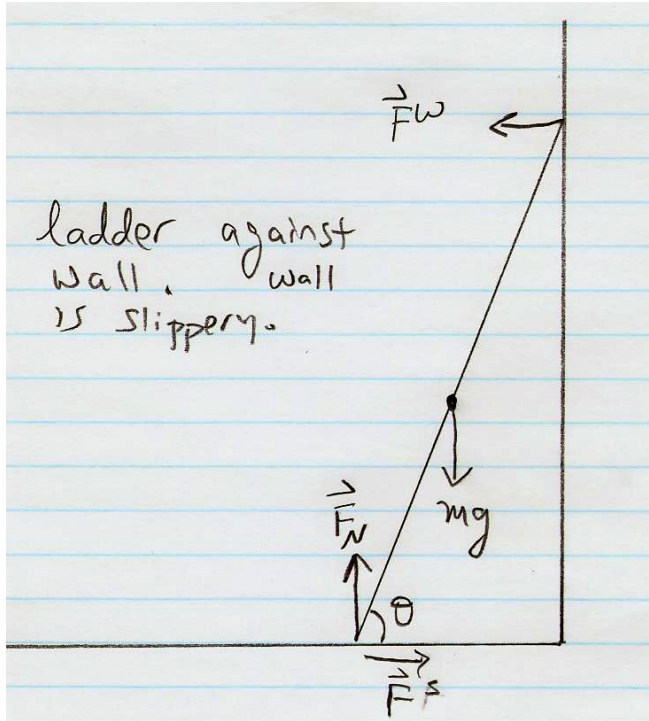 F^W
ladder against
wall. wall
is slippery.
F_N
mg
θ
F^f